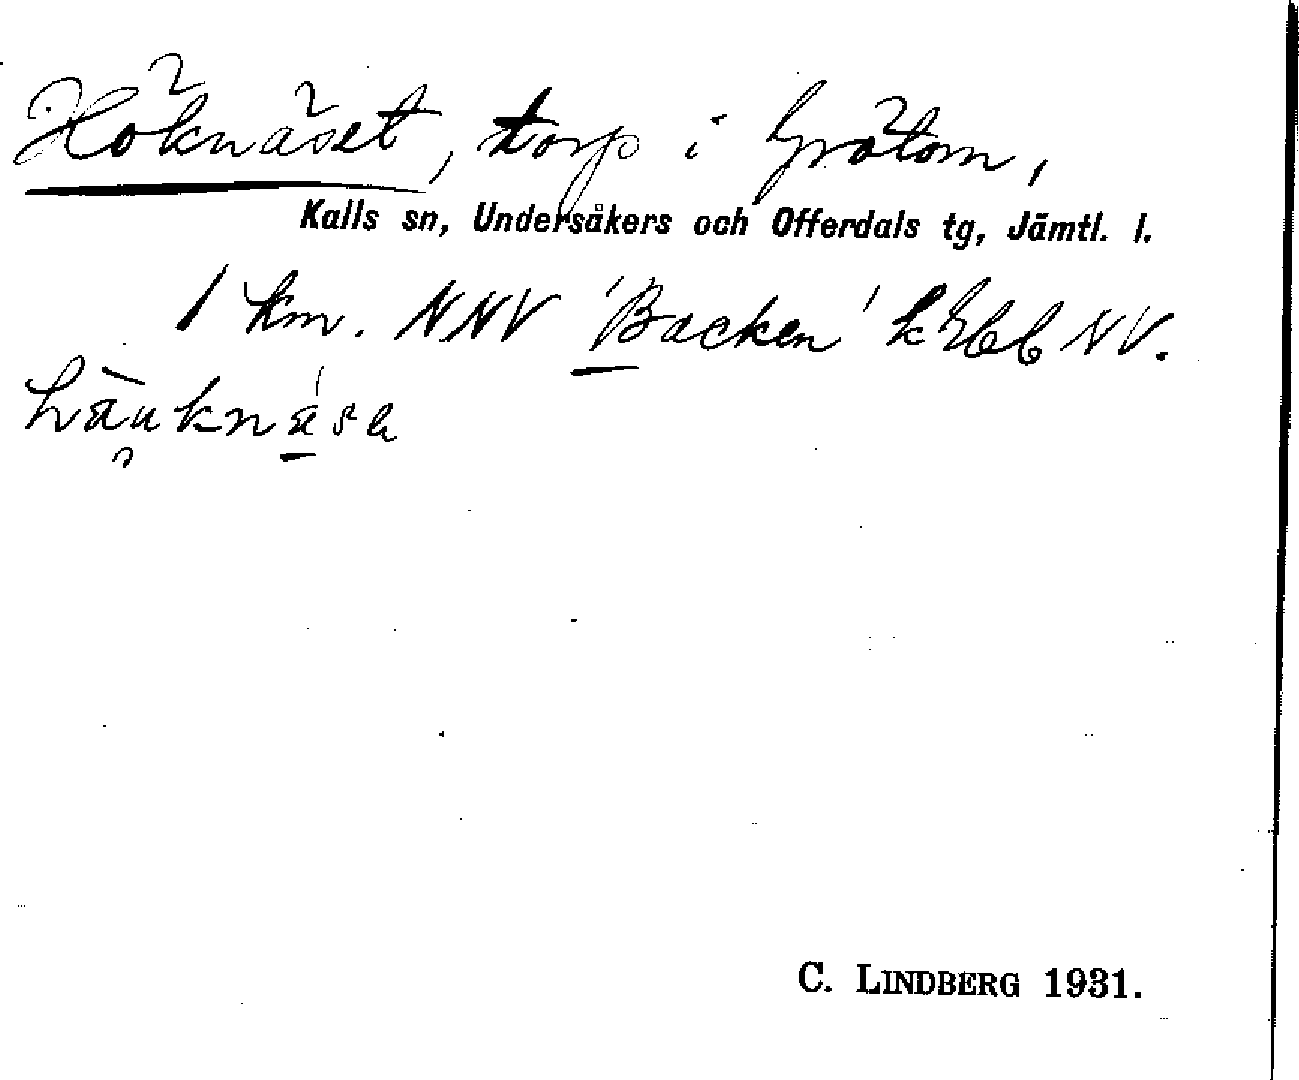 Höknäset, torp i Gråtom,
Kalls sn, Undersåkers och Offerdals tg, Jämtl. l.
1 km. NNV 'Backen' NV.